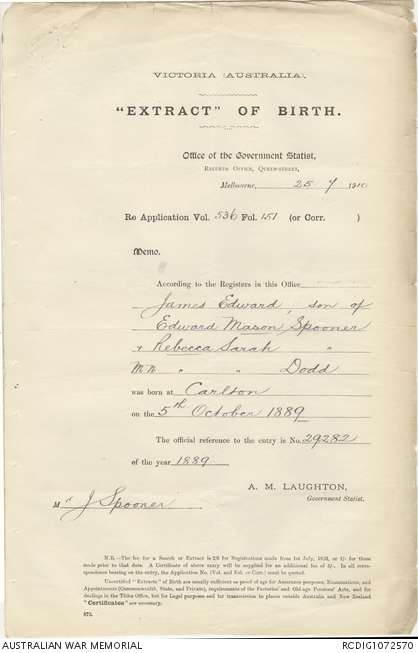 VICTORIA (AUSTRALIA).
"EXTRACT" OF BIRTH.
Office of the Government Statist,
RECORDS OFFICE, QUEEN-STREET,
Melbourne, 25 7 1910
Re Application Vol. 536 Fol. 151 (or Corr. )
Memo.
According to the Registers in this Office
James Edward, son of
Edward Mason Spooner
& Rebecca Sarah "
M.N. " " Dodd
was born at Carlton
on the 5th October 1889
The official reference to the entry is No. 29282
of the year 1889
A. M. LAUGHTON,
Government Statist.
Mr J Spooner
N.B.—The fee for a Search or Extract is 2/6 for Registrations made from 1st July, 1853, or 1/- for those
made prior to that date. A Certificate of above entry will be supplied for an additional fee of 5/-. In all corres-
pondence bearing on the entry, the Application No. (Vol. and Fol. or Corr.) must be quoted.
Uncertified "Extracts" of Birth are usually sufficient as proof of age for Assurance purposes, Examinations, and
Appointments (Commonwealth, State, and Private), requirements of the Factories' and Old-age Pensions' Acts, and for
dealings in the Titles Office, but for Legal purposes and for transmission to places outside Australia and New Zealand
"Certificates" are necessary.
873.
AUSTRALIAN WAR MEMORIAL
RCDIG1072570